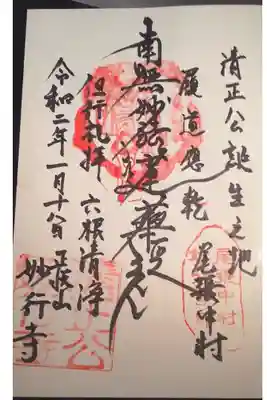 清正公誕生之地
尾張中村
履道應乾
南無妙法蓮華経
但行礼拝
六根清浄
令和二年一月十八日
正悦山
妙行寺